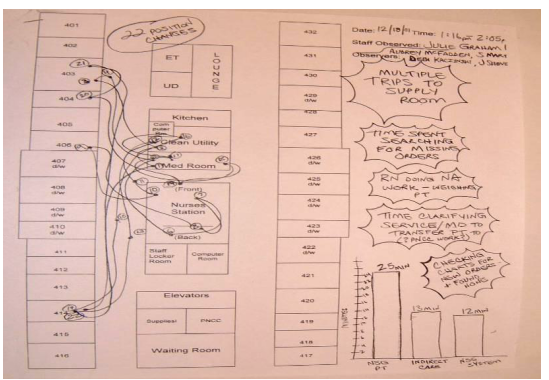 401
402
403
404
405
406
407
d/w
408
d/w
409
d/w
410
d/w
411
412
413
414
415
416
22 POSITION
CHANGES
ET
UD
LOUNGE
Kitchen
Clean Utility
Med Room
(Front)
Nurses
Station
(Back)
Staff
Locker
Room
Computer
Room
Elevators
Supplies
PNCC
Waiting Room
432
431
430
429
d/w
428
427
426
d/w
425
d/w
424
d/w
423
d/w
422
d/w
421
420
419
418
417
Date: Time:
Staff Observed: JULIE GRAHAM
Observers:
MULTIPLE
TRIPS TO
SUPPLY
ROOM
TIME SPENT
SEARCHING
FOR MISSING
ORDERS
RN DOING NA
WORK - WEIGHING
PT
TIME CLARIFYING
SERVICE/MD TO
TRANSFER PT TO
(PNCC WORK?)
CHECKING
CHARTS FOR
NEW ORDERS
+ FOUND
NONE
25 MIN
13 MIN
12 MIN
NSG
PT
INDIRECT
CARE
NSG
SYSTEM